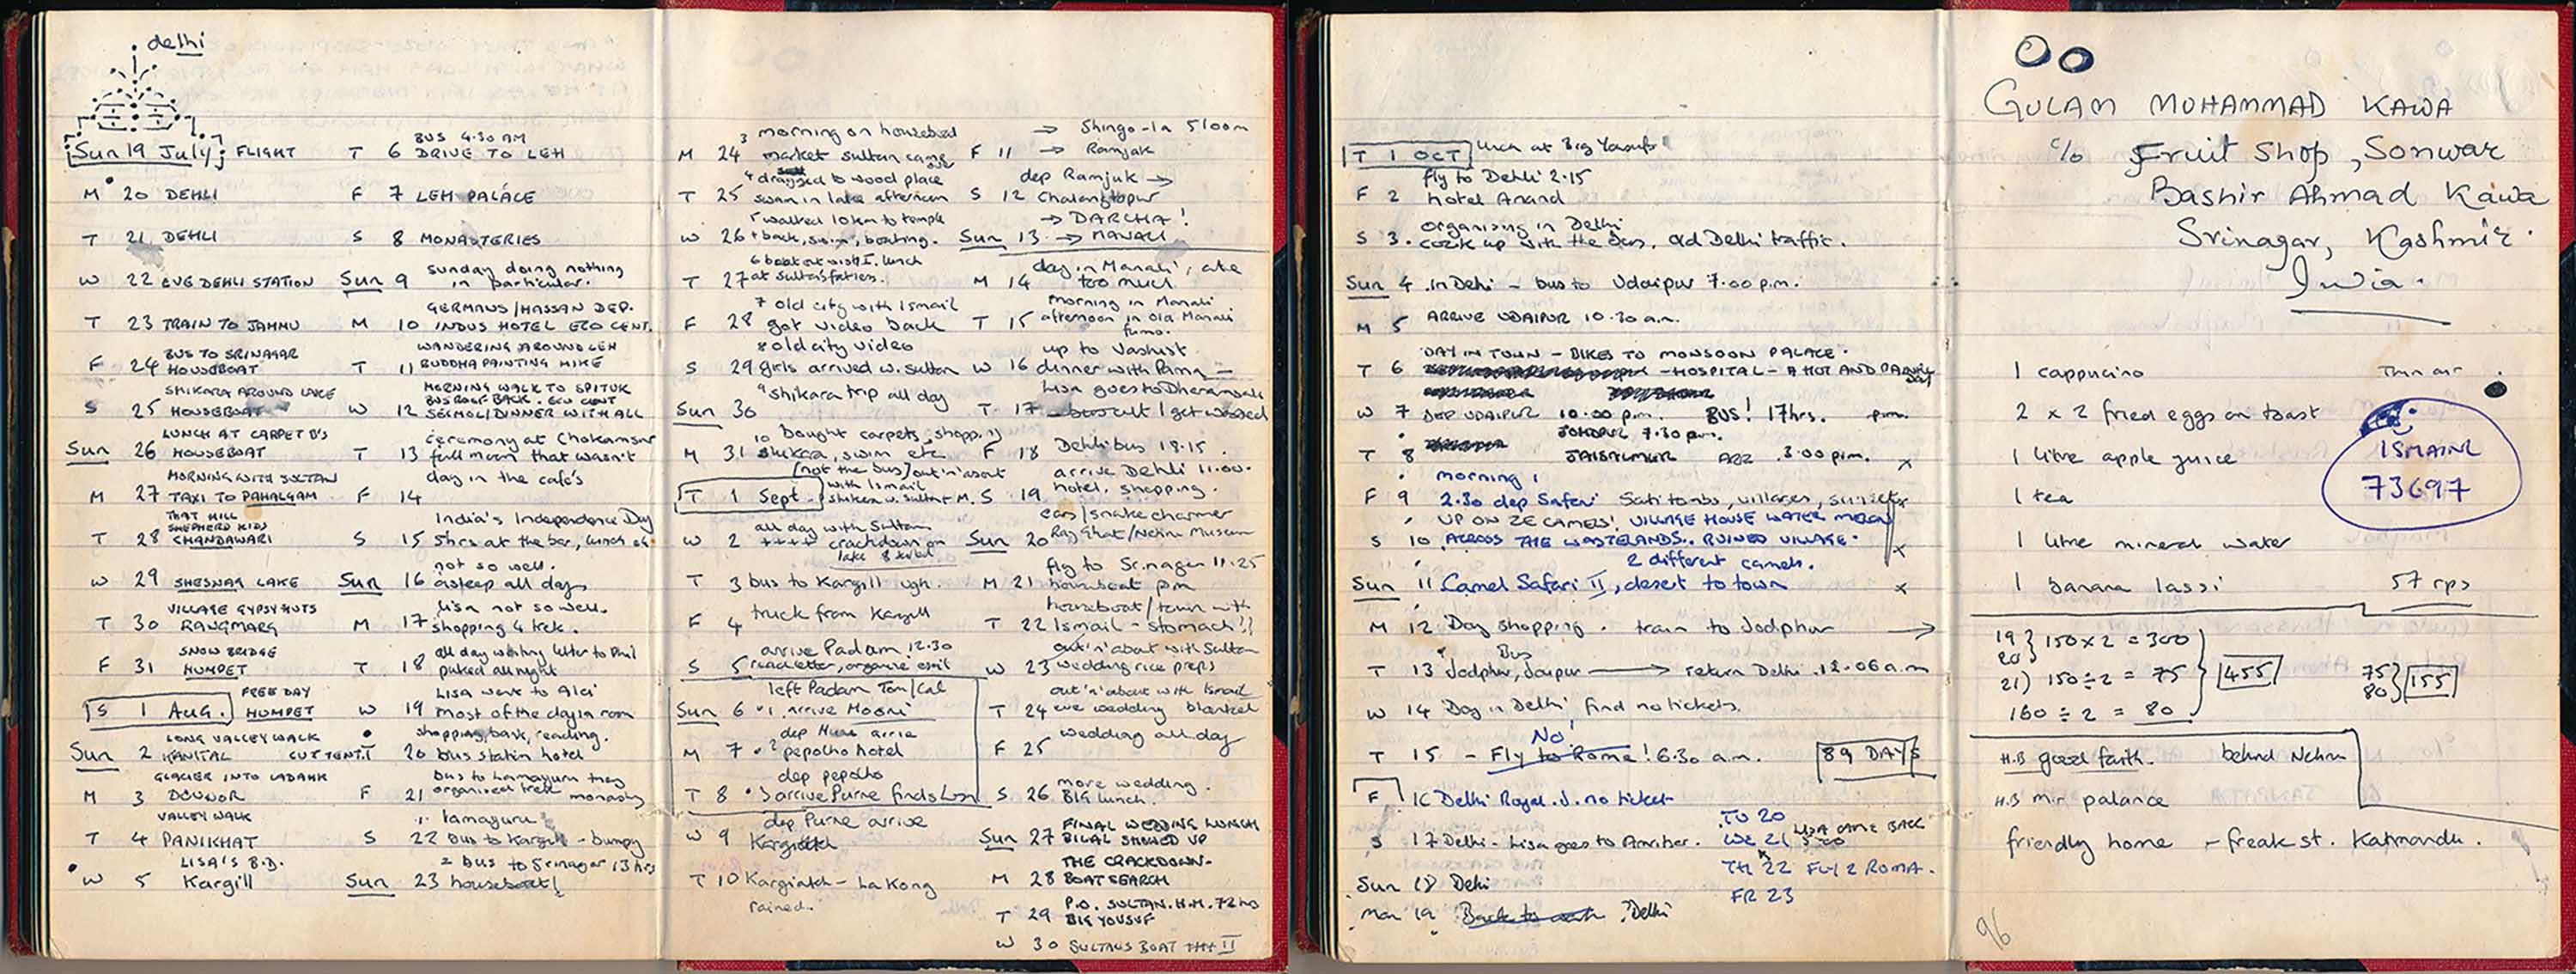 delhi
Sun 19 July FLIGHT
M 20 DEHLI
T 21 DEHLI
W 22 EVE DEHLI STATION
T 23 TRAIN TO JAMMU
BUS TO SRINAGAR
F 24 HOUSEBOAT
SHIKARA AROUND LAKE
S 25 HOUSEBOAT
LUNCH AT CARPET B'S
Sun 26 HOUSEBOAT
MORNING WITH SULTAN
M 27 TAXI TO PAHALGAM
THAT HILL
SHEPHERD KIDS
T 28 CHANDAWARI
W 29 SHESNAG LAKE
VILLAGE GYPSY HUTS
T 30 RANGMARG
SNOW BRIDGE
F 31 HUMPET
FREE DAY
S 1 AUG. HUMPET
LONG VALLEY WALK
Sun 2 KANITAL
GLACIER INTO LADAHK
M 3 DONNOR
VALLEY WALK
T 4 PANIKHAT
LISA'S B.D.
W 5 Kargill
BUS 4.30 AM
T 6 DRIVE TO LEH
F 7 LEH PALACE
S 8 MONASTERIES
Sunday doing nothing
Sun 9 in particular.
GERMANS/HASSAN DEP.
M 10 INDUS HOTEL ECO CENT.
WANDERING AROUND LEH
T 11 BUDDHA PAINTING MIKE
MORNING WALK TO SPITUK
BUS ROOF BACK. ECO CENT
W 12 SECMOL/DINNER WITH ALL
ceremony at Chokamsar
T 13 full moon that wasn't
day in the café's
F 14
India's Independence Day
S 15 5hrs at the bar, lunch
not so well.
Sun 16 asleep all day
Lisa not so well.
M 17 shopping 4 trek.
all day writing letter to Phil
T 18 puked all night
LISA went to Alci
W 19 most of the day in room
shopping, bank, reading.
CUT TENT. T 20 bus station hotel
bus to Lamayuru they
F 21 organised trek monastry
Lamayuru
S 22 bus to Kargil - bumpy
2 bus to Srinagar 13 hrs
Sun 23 houseboat!
3 morning on houseboat
M 24 market sultan came
4 dragged to wood place
T 25 swam in lake afternoon
5 walked 10km to temple
W 26 + back, swim, boating.
6 boat out with I. lunch
T 27 at sultan's
7 old city with Ismail
F 28 got video back
8 old city video
S 29 girls arrived w. sultan
9 shikara trip all day
Sun 30
10 bought carpets, shopping
M 31 shikara, swim etc
(not the bus) out 'n' about
with Ismail
T 1 Sept. shikara w. sultan + M.
all day with Sultan
W 2 ++++ crackdown on
lake 8 killed
T 3 bus to Kargill ugh.
F 4 truck from Kargill
arrive Padam 12.30
S 5 read letter, organise
left Padam Tom/Cal
Sun 6 1 arrive Mooni
dep Mune arrive
M 7 2 pepolho hotel
dep pepolho
T 8 3 arrive Purne finds Lisa
dep Purne arrive
W 9 Kargiakh
T 10 Kargiakh - La Kong
rained.
→ Shingo-la 5100m
F 11 → Ramjak
dep Ramjuk →
S 12 Chalangtopur
→ DARCHA!
Sun 13 → MANALI
day in Manali, ate
M 14 too much
Morning in Manali
T 15 afternoon in old Manali
fumo.
up to Vashist
W 16 dinner with Pama
Lisa goes to Dheramsala
T 17 I get wasted
F 18 Dehli bus 18.15
arrive Dehli 11.00.
S 19 hotel. shopping.
cars/snake charmer
Sun 20 Raj Ghat/Nehru Museum
fly to Srinager 11.25
M 21 houseboat pm
houseboat/town with
T 22 Ismail - stomach!!
out 'n' about with Sultan
W 23 wedding rice preps
out 'n' about with Ismail
T 24 eve wedding blanket
F 25 wedding all day
more wedding.
S 26 BIG lunch.
FINAL WEDDING LUNCH
Sun 27 BILAL SHOWED UP
THE CRACKDOWN-
M 28 BOAT SEARCH
P.O. SULTAN. H.M. 72 HD
T 29 BIG YOUSUF
W 30 SULTANS BOAT II
T 1 OCT lunch at Big Yousufs
fly to Dehli 2.15
F 2 hotel Anand
organising in Delhi
S 3. cock up with the bus. old Delhi traffic.
Sun 4 .In Dehi - bus to Udaipur 7.00 p.m.
M 5 ARRIVE UDAIPUR 10.30 a.m.
DAY IN TOWN - BIKES TO MONSOON PALACE.
T 6 - HOSPITAL - A HOT AND PANIC day
W 7 DEP UDAIPUR 10.00 p.m. BUS! 17hrs. p.m.
JOHDPUR 7.30 pm.
T 8 JAISALMER ARR 3.00 p.m. x
morning
F 9 2.30 dep Safari Sati tombs, villages, sunset x
UP ON ZE CAMELS! VILLAGE HOUSE WATER MELON
S 10 ACROSS THE WASTELANDS.. RUINED VILLAGE. x
2 different camels.
Sun 11 Camel Safari II, desert to town x
M 12 Day shopping. train to Jodphur →
Bus
T 13 Jodphur, Jaipur → return Delhi .12.06 a.m
W 14 Day in Delhi, find no tickets.
No!
T 15 - Fly to Rome! 6.30 a.m. 89 DAYS
F 16 Delhi Royal. J. no ticket
TU 20
S 17 Delhi - Lisa goes to Amritser. WE 21 LISA CAME BACK
TH 22 FLY 2 ROMA.
Sun 18 Dehi
FR 23
Mon 19 Delhi
GULAM MUHAMMAD KAWA
c/o Fruit Shop, Sonwar
Bashir Ahmad Kawa
Srinagar, Kashmir.
India.
1 cappucino Thin air
2 x 2 fried eggs on toast
1 litre apple juice
1 tea
1 litre mineral water
1 banana lassi 57 rps
ISMAIL
73697
19} 150 x 2 = 300
20}
21) 150 ÷ 2 = 75 455
160 ÷ 2 = 80
75}
80} 155
H.B good faith. behind Nehru
H.B mir palance
friendly home - freak st. Katmandu.
96